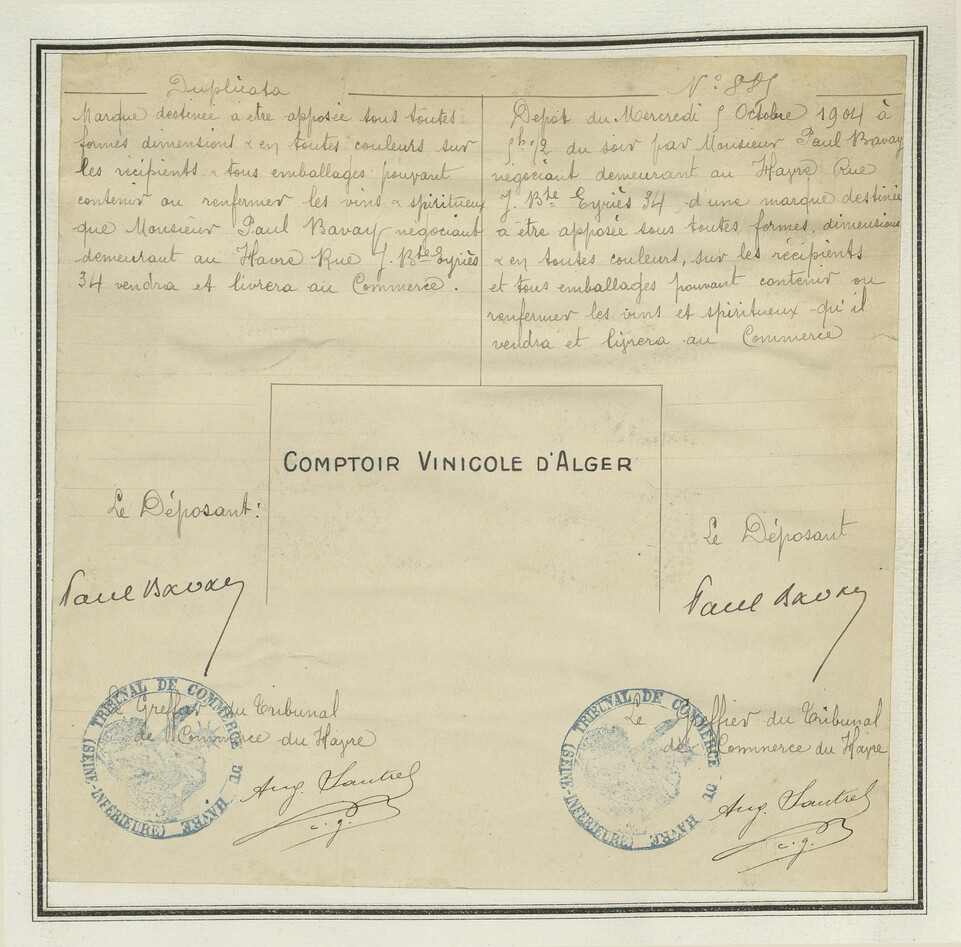 Duplicata
Marque destinée a être apposée sous toutes
formes dimensions & en toutes couleurs sur
les récipients & tous emballages pouvant
contenir ou renfermer les vins & spiritueux
que Monsieur Paul Bavay négociant
demeurant au Havre Rue J. Bte Eyriès
34 vendra et livrera au Commerce.
N° 885
Dépôt du Mercredi 5 Octobre 1904 à
5h 1/2 du soir par Monsieur Paul Bavay
négociant demeurant au Havre Rue
J. Bte Eyriès 34 d'une marque destinée
a être apposée sous toutes formes, dimensions
& en toutes couleurs, sur les récipients
et tous emballages pouvant contenir ou
renfermer les vins et spiritueux qu'il
vendra et livrera au Commerce
COMPTOIR VINICOLE D'ALGER
Le Déposant:
Paul Bavay
Le Greffier du Tribunal
de Commerce du Havre
Aug. Lautrel
c.g.
TRIBUNAL DE COMMERCE DU HAVRE (SEINE-INFERIEURE)
Le Déposant
Paul Bavay
Le Greffier du Tribunal
de Commerce du Havre
Aug. Lautrel
c.g.
TRIBUNAL DE COMMERCE DU HAVRE (SEINE-INFERIEURE)